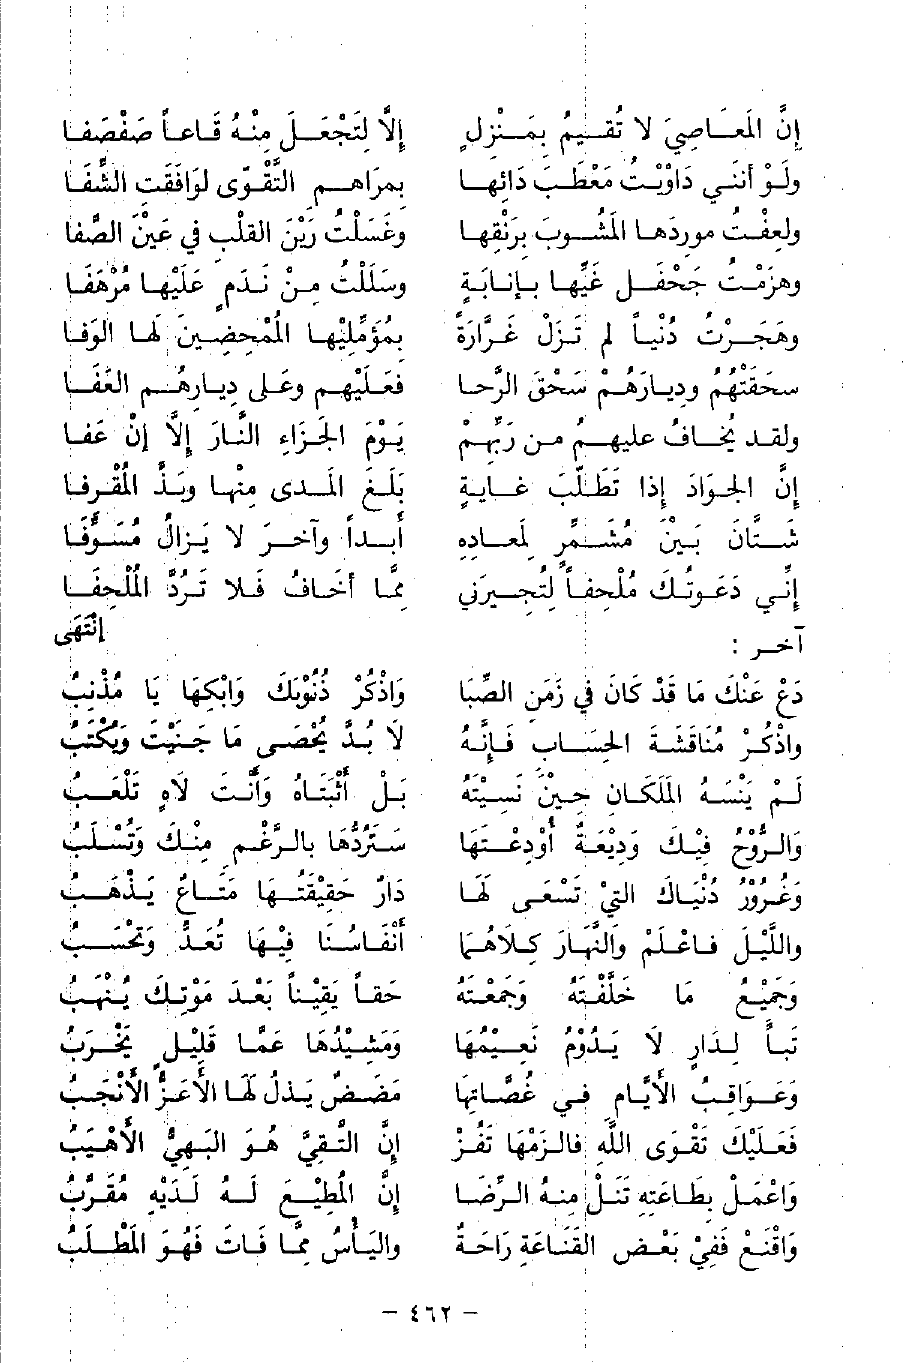 إِنَّ المَعَاصِيَ لَا تُقِيمُ بِمَنْزِلٍ إِلَّا لِتَجْعَلَ مِنْهُ قَاعاً صَفْصَفَا
وَلَوْ أَنَّنِي دَاوَيْتُ مَعْطَبَ دَائِهَا بِمَرَاهِمِ التَّقْوَى لَوَافَقْتُ الشِّفَا
وَلَعِفْتُ مَوْرِدَهَا المَشُوبَ بِرَنْقِهَا وَغَسَلْتُ رَيْنَ القَلْبِ في عَيْنِ الصَّفَا
وَهَزَمْتُ جَحْفَلَ غَيِّهَا بِإِنَابَةٍ وَسَلَلْتُ مِنْ نَدَمٍ عَلَيْهَا مُرْهَفَا
وَهَجَرْتُ دُنْيَا لم تَزَلْ غَرَّارَةً بِمُؤَمِّلِيْهَا المُمْحِضِينَ لَهَا الوَفَا
سَحَقَتْهُمُ وَدِيَارَهُمْ سَحْقَ الرَّحَا فَعَلَيْهِمُ وَعَلَى دِيَارِهِمُ العَفَا
وَلَقَدْ يُخَافُ عَلَيْهِمُ مِنْ رَبِّهِمْ يَوْمَ الجَزَاءِ النَّارَ إِلَّا إِنْ عَفَا
إِنَّ الجَوَادَ إِذَا تَطَلَّبَ غَايَةً بَلَغَ المَدَى مِنْهَا وَبَذَّ المُقْرِفَا
شَتَّانَ بَيْنَ مُشَمِّرٍ لِمَعَادِهِ أَبَداً وَآخَرَ لَا يَزَالُ مُسَوِّفَا
إِنِّي دَعَوْتُكَ مُلْحِفاً لِتُجِيرَنِي مِمَّا أَخَافُ فَلَا تَرُدَّ المُلْحِفَا
اِنْتَهَى
آخر :
دَعْ عَنْكَ مَا قَدْ كَانَ في زَمَنِ الصِّبَا وَاذْكُرْ ذُنُوبَكَ وَابْكِهَا يَا مُذْنِبُ
وَاذْكُرْ مُنَاقَشَةَ الحِسَابِ فَإِنَّهُ لَا بُدَّ يُحْصَى مَا جَنَيْتَ وَيُكْتَبُ
لَمْ يَنْسَهُ المَلَكَانِ حِينَ نَسِيْتَهُ بَلْ أَثْبَتَاهُ وَأَنْتَ لَاهٍ تَلْعَبُ
وَالرُّوْحُ فِيكَ وَدِيْعَةٌ أُوْدِعْتَهَا سَتَرُدُّهَا بِالرَّغْمِ مِنْكَ وَتُسْلَبُ
وَغُرُوْرُ دُنْيَاكَ التي تَسْعَى لَهَا دَارٌ حَقِيْقَتُهَا مَتَاعٌ يَذْهَبُ
وَاللَّيْلَ فَاعْلَمْ وَالنَّهَارَ كِلَاهُمَا أَنْفَاسُنَا فِيْهَا تُعَدُّ وَتُحْسَبُ
وَجَمِيْعُ مَا خَلَّفْتَهُ وَجَمَعْتَهُ حَقاً يَقِيناً بَعْدَ مَوْتِكَ يُنْهَبُ
تَباً لِدَارٍ لَا يَدُوْمُ نَعِيمُهَا وَمَشِيْدُهَا عَمَّا قَلِيْلٍ يَخْرَبُ
وَعَوَاقِبُ الأَيَّامِ في غَصَّاتِهَا مَضَضٌ يَذِلُّ لَهَا الأَعَزُّ الأَنْجَبُ
فَعَلَيْكَ تَقْوَى اللهِ فَالزَمْهَا تَفُزْ إِنَّ التَّقِيَّ هُوَ البَهِيُّ الأَهْيَبُ
وَاعْمَلْ بِطَاعَتِهِ تَنَلْ مِنْهُ الرِّضَا إِنَّ المُطِيْعَ لَهُ لَدَيْهِ مُقَرَّبُ
وَاقْنَعْ فَفِي بَعْضِ القَنَاعَةِ رَاحَةٌ وَاليَأْسُ مِمَّا فَاتَ فَهْوَ المَطْلَبُ
– ٤٦٢ –